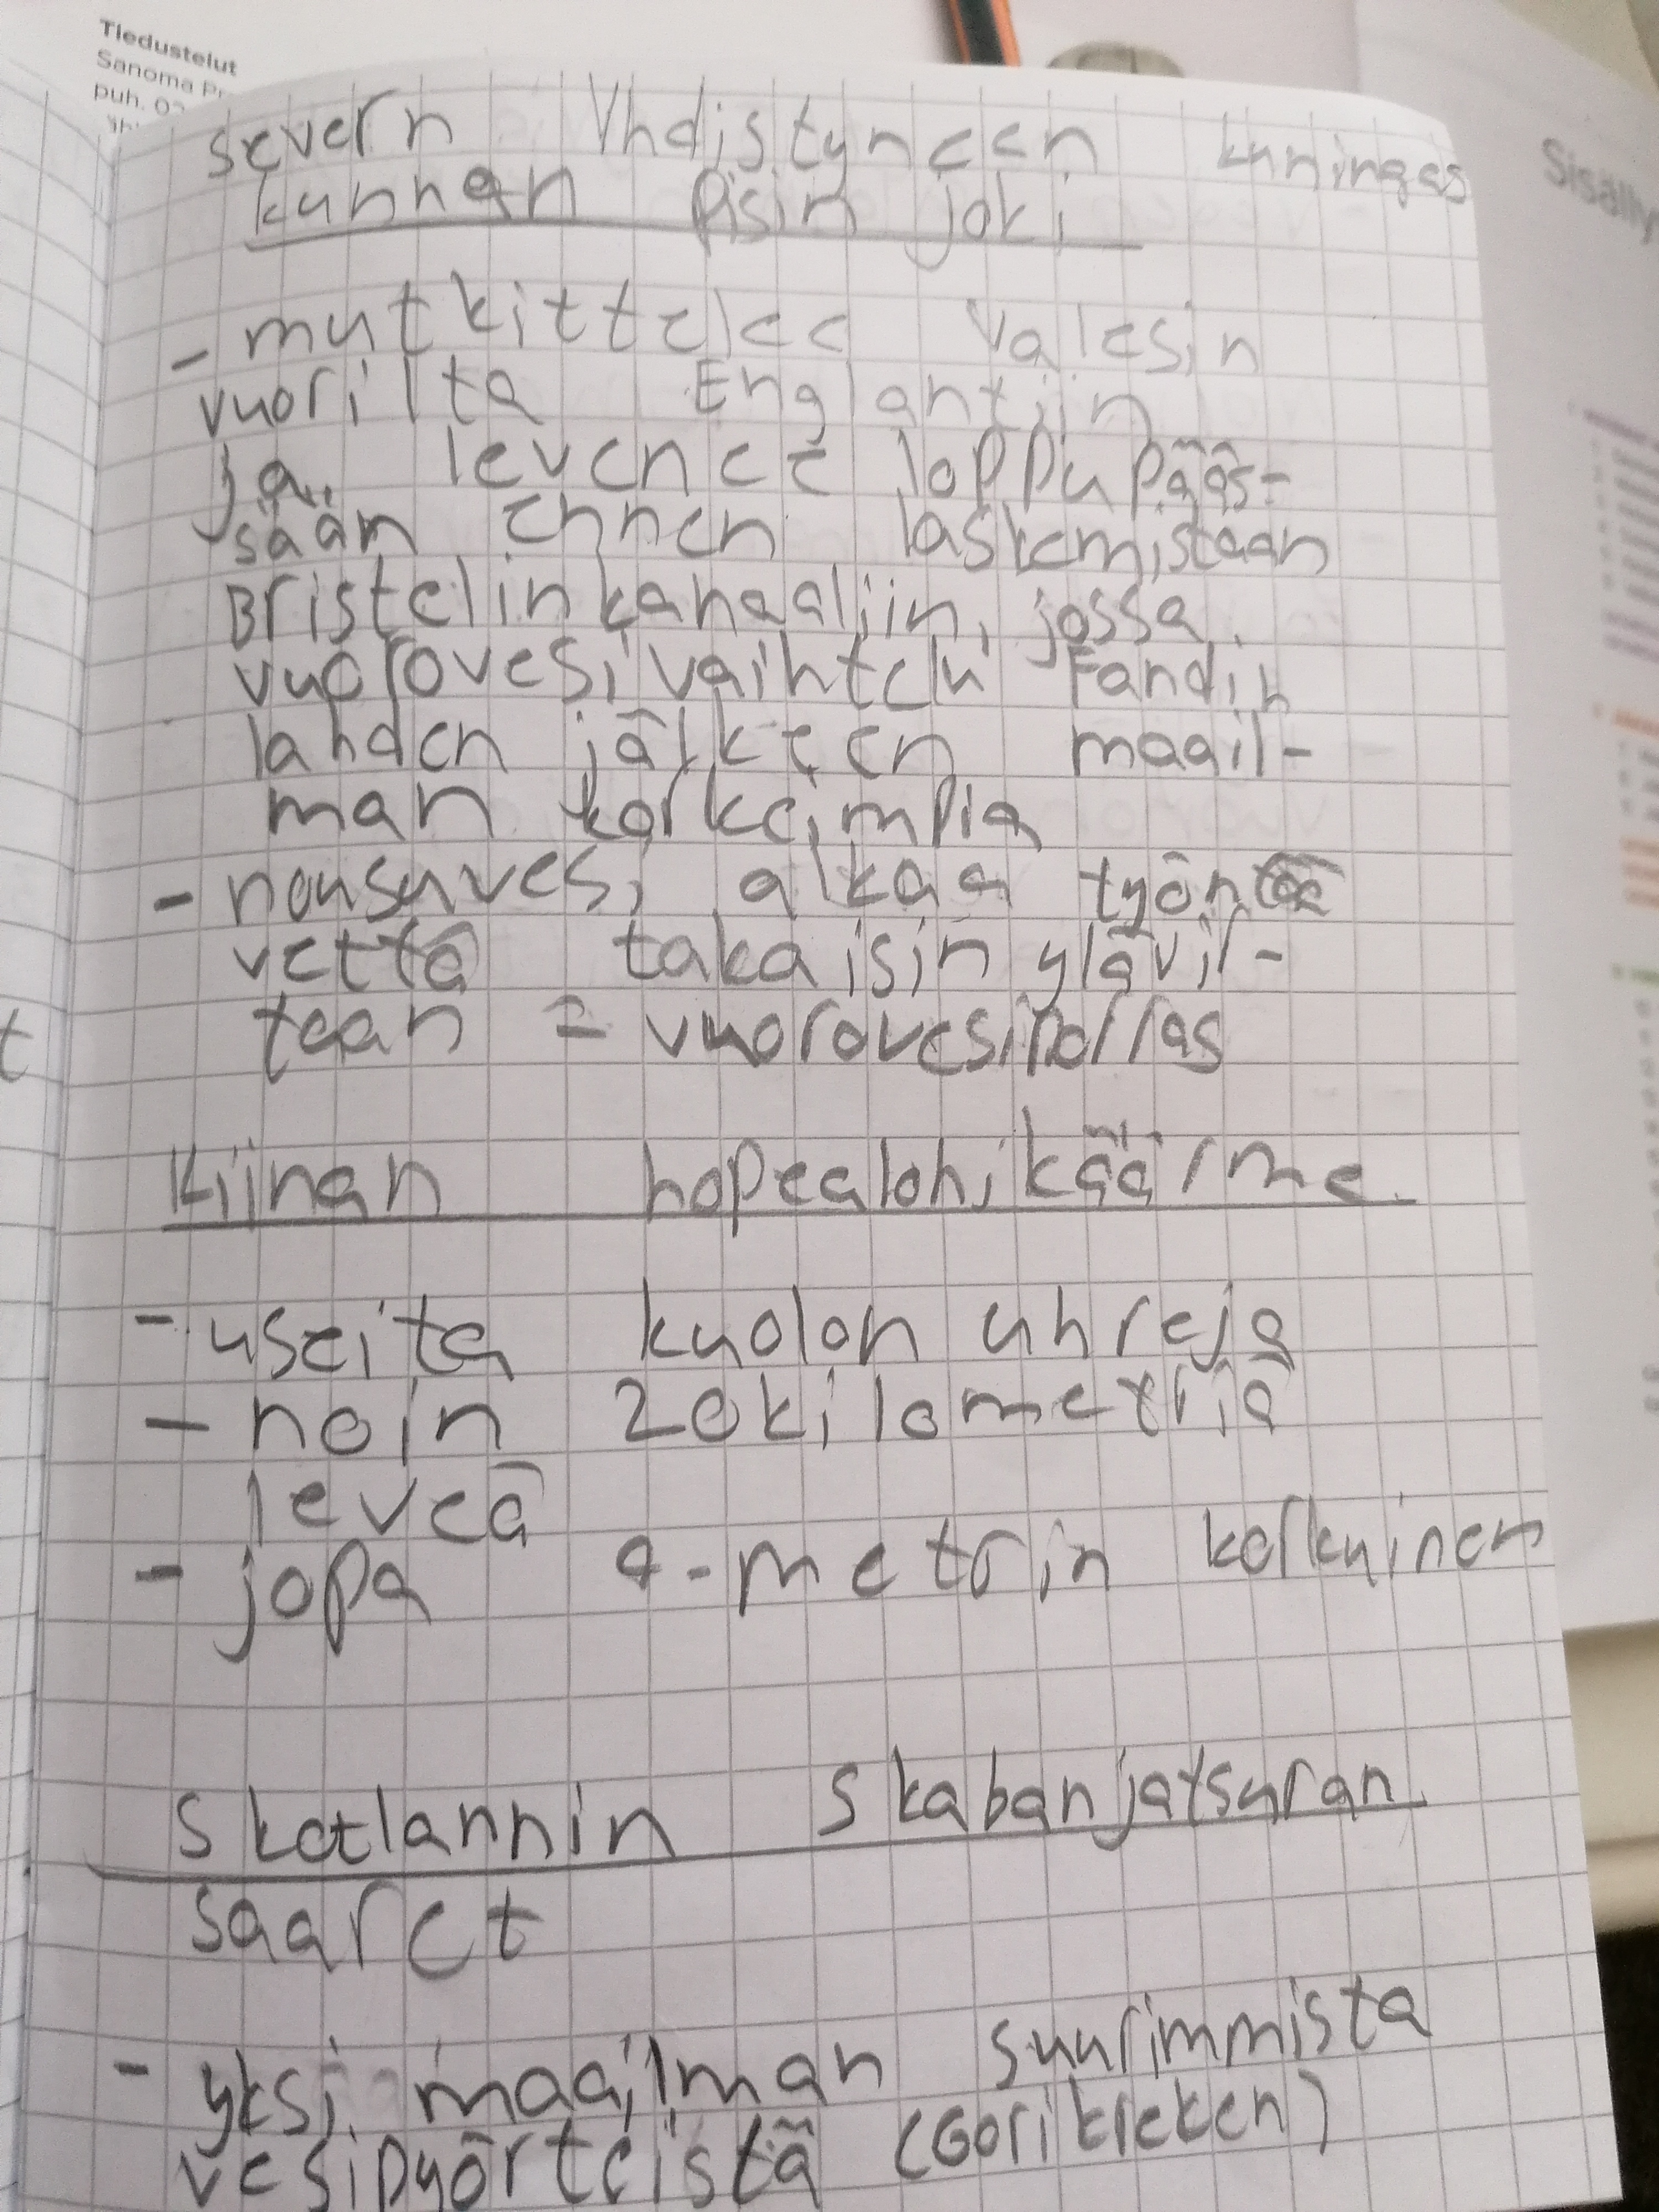 Tiedustelut
Sanoma Pr
puh. 02
Sisälly
severn Yhdistyneen kuningas
kunnan pisin joki
- mutkittelee Valesin
vuorilta Englantiin
ja levenee loppupääs-
sään ennen laskemistaan
Bristelinkanaaliin, jossa
vuorovesivaihtelu Fandin
lahden jälkeen maail-
man korkeimpia
- nousuvesi alkaa työntää
vettä takaisin ylävir-
taan = vuorovesiporras
Kiinan hopealohikäärme
- useita kuolon uhreja
- noin 20kilometriä
leveä
- jopa 9-metrin korkuinen
Skotlannin Skabanjatsuran
saaret
- yksi maailman suurimmista
vesipyörteistä (Gorikreken)
t